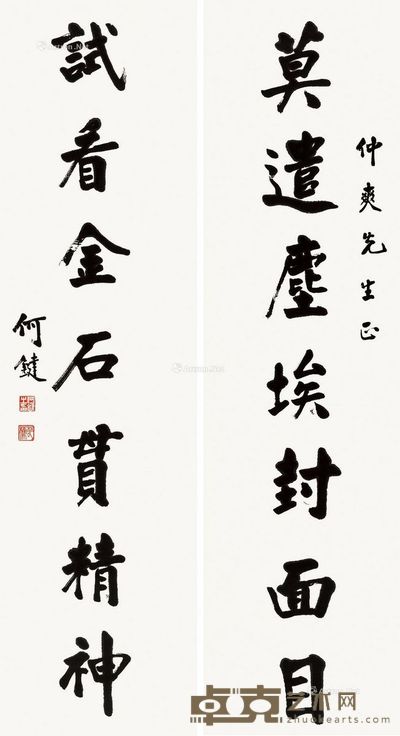 莫遣塵埃封面目
仲爽先生正
試看金石貫精神
何鍵
卓克艺术网
zhuokearts.com